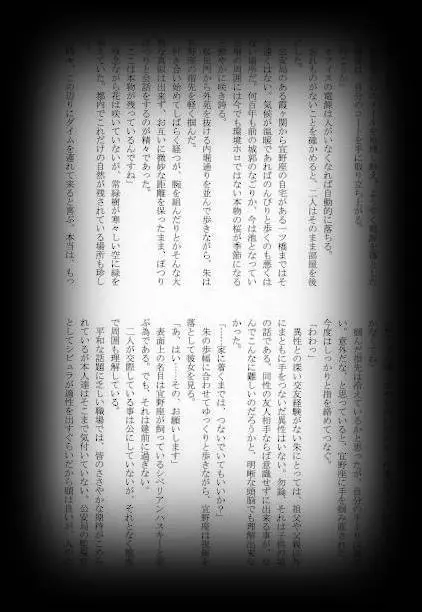 は、自分のコートを手に取り立ち上がる。
イスの電源は人がいなくなれば自動的に落ちる。
忘れものがないことを確かめると、二人はそのまま部屋を後
した。
公安局のある霞ヶ関から宜野座の自宅がある一ツ橋まではそ
遠くはない。気候が温暖であればのんびりと歩くのも悪くは
い場所だ。何百年も前の城郭のなごりか、今は池となってい
の周囲には今でも環境ホロではない本物の桜が季節になる
鮮やかに咲き誇る。
から外苑を抜ける内堀通りを並んで歩きながら、朱は
の指先を軽く掴んだ。
付き合い始めてしばらく経つが、腕を組んだりとかそんな大
な真似は出来ず、お互いに微妙な距離を保ったまま、ぽつり
と会話をするのが精々であった。
ここは本物が残っているんですね」
残念ながら花は咲いていないが、常緑樹が寒々しい空に緑を
いていた。都内でこれだけの自然が残されている場所も珍し
時々、この辺りにダイムを連れて来ると喜ぶ。本当は、もっ
掴んだ指先は冷えているかと思ったが、自分の手よりは
い。意外だな、と思っていると、宜野座に手を掴み直された
今度はしっかりと指を絡めてつなぐ。
「わわっ」
異性との深い交友経験がない朱にとっては、祖父や父親以外
にまともに手をつないだ異性はいない。勿論、それは子供の頃
の話である。同性の友人相手ならば意識せずに出来る事が、な
んでこんなに難しいのだろうかと、明晰な頭脳でも理解出来な
かった。
「……家に着くまでは、つないでいてもいいか？」
朱の歩幅に合わせてゆっくりと歩きながら、宜野座は視線を
落として彼女を見る。
「あ、はい……その、お願いします」
表面上の名目は宜野座が飼っているシベリアンハスキーと遊
ぶ為である。でも、それは建前に過ぎない。
二人が交際している事は公にしていないが、それとなく雰囲
で周囲も理解している。
平和な話題に乏しい職場では、皆のささやかな
れているが本人達はそこまで気付いていない。公安の監視官
としてシビュラが適性を出すぐらいだから頭は良いが、